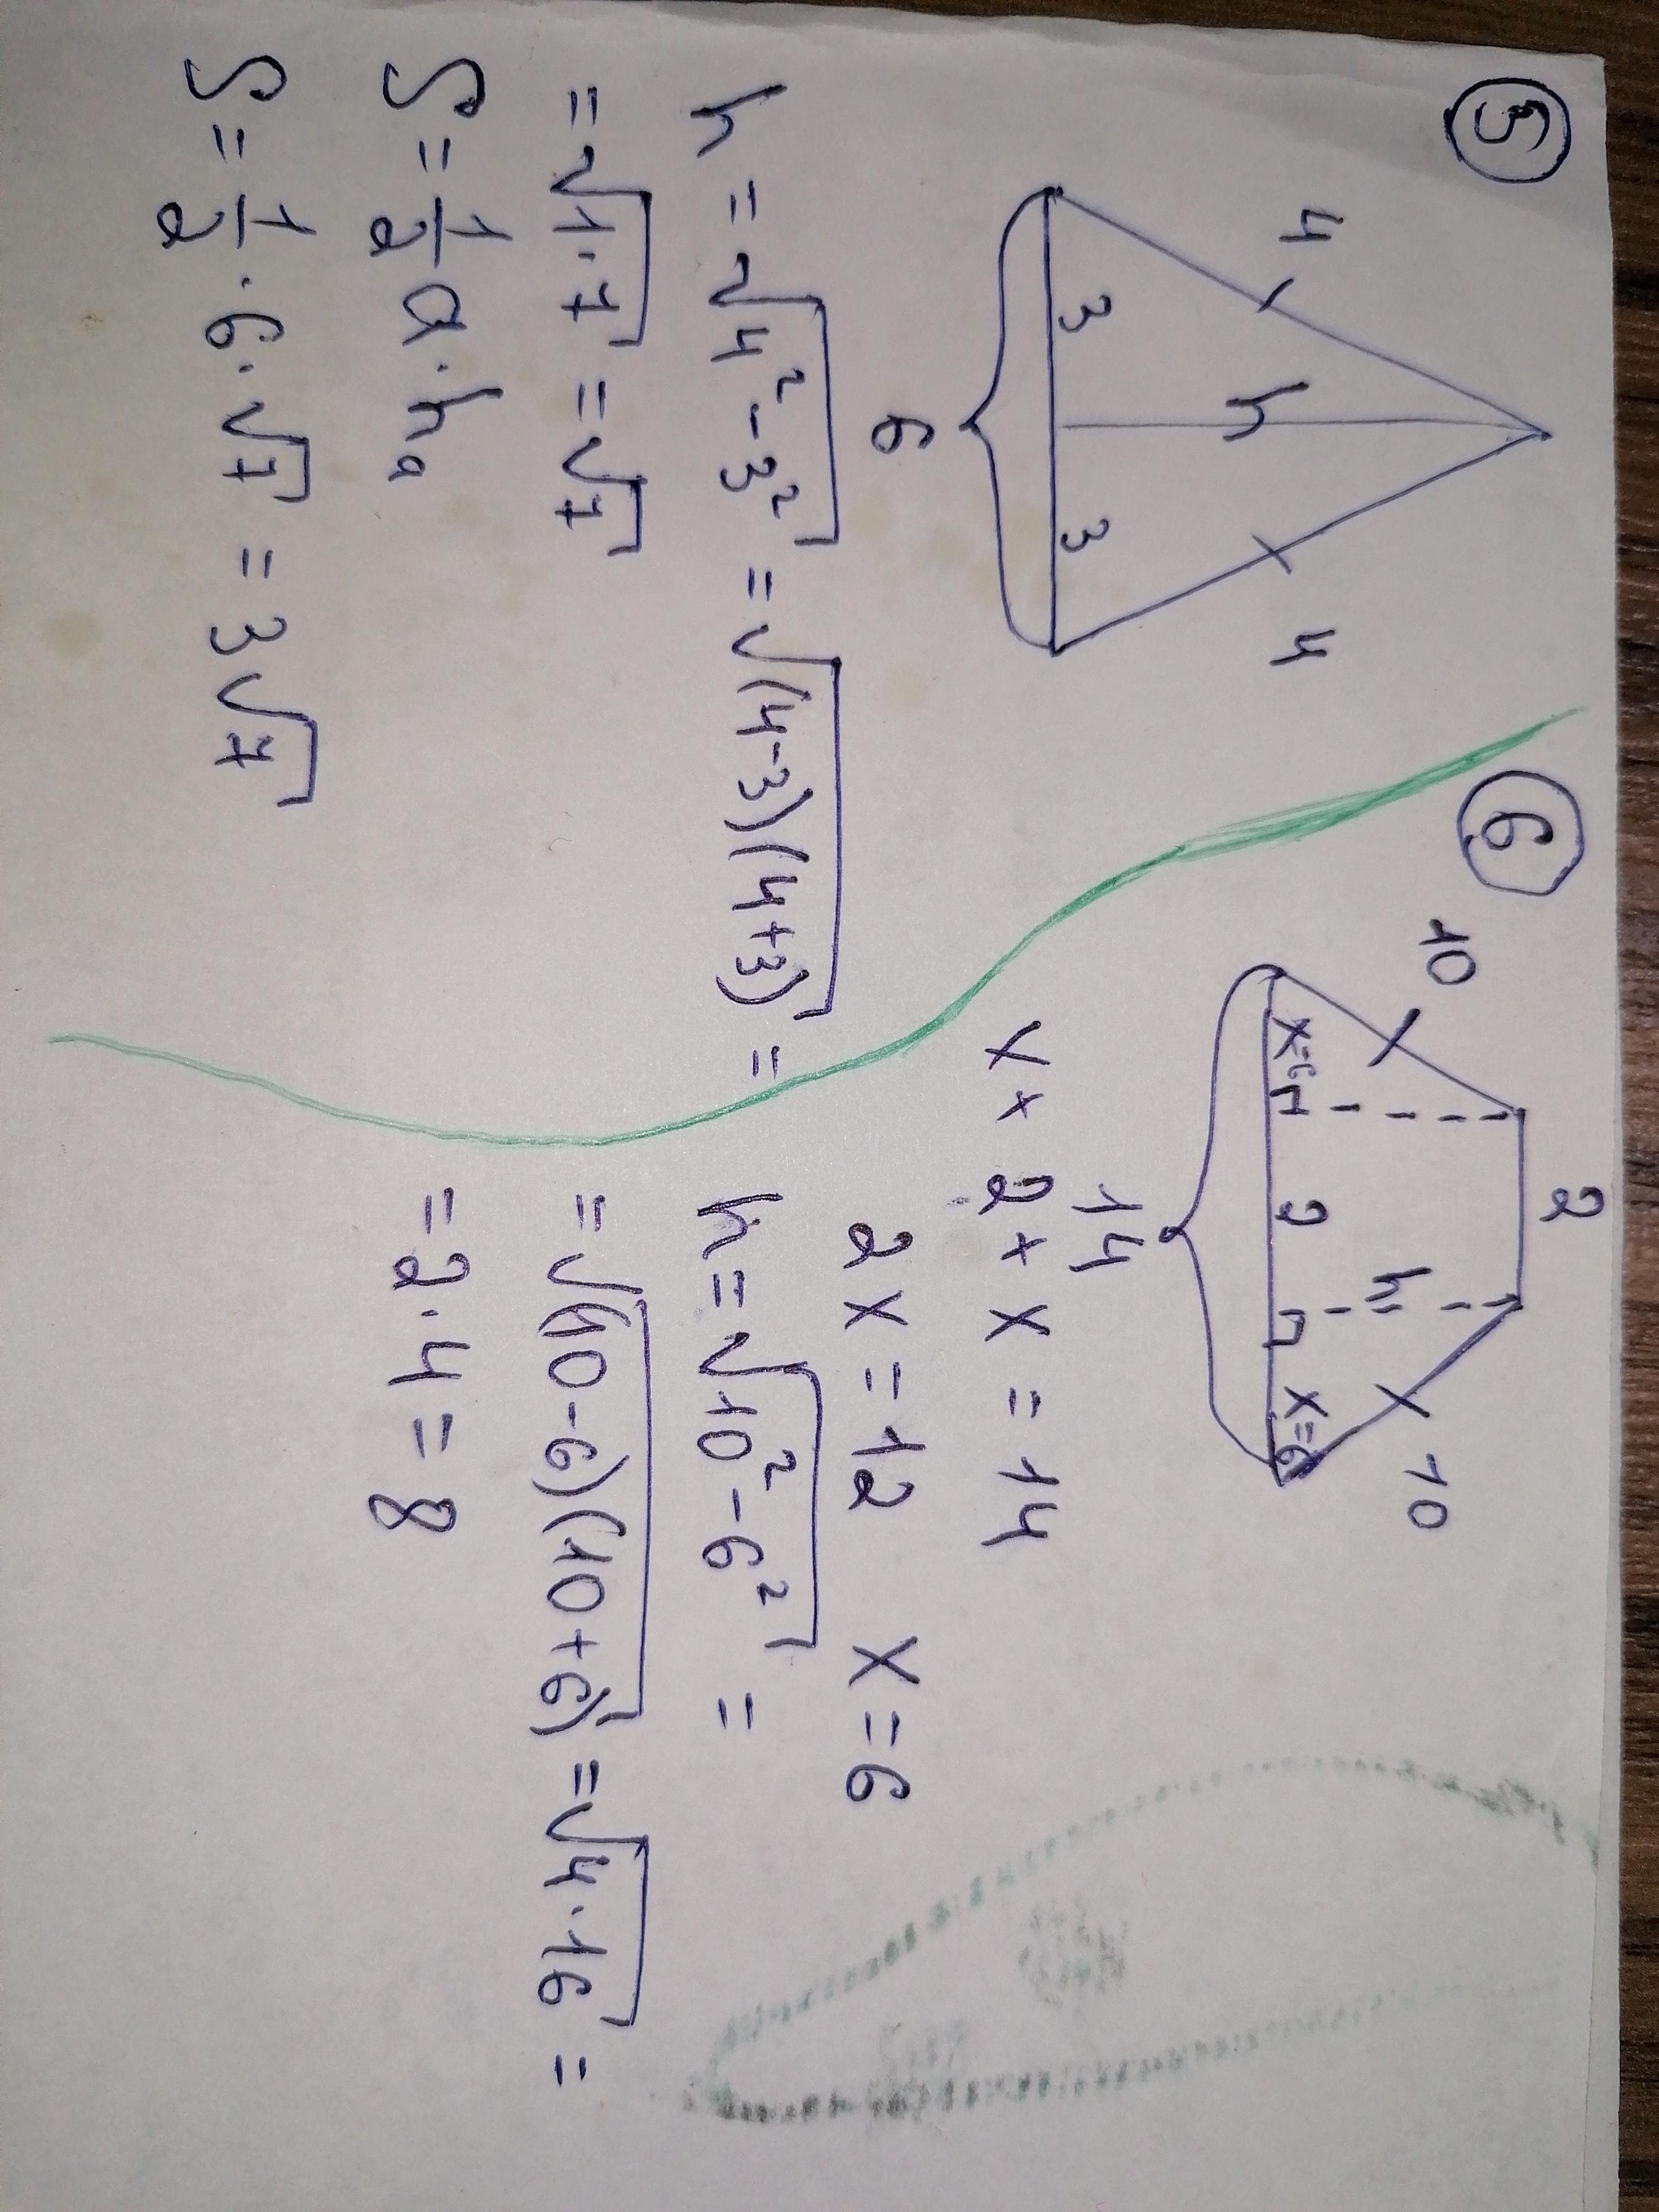 5
4
4
h
3
3
6
h = √4² - 3² = √(4-3)(4+3) =
= √1·7 = √7
S = 1/2 a · hₐ
S = 1/2 · 6 · √7 = 3√7
6
2
10
10
h
x=6
2
x=6
14
x + 2 + x = 14
2x = 12 x = 6
h = √10² - 6² =
= √(10-6)(10+6) = √4·16 =
= 2·4 = 8